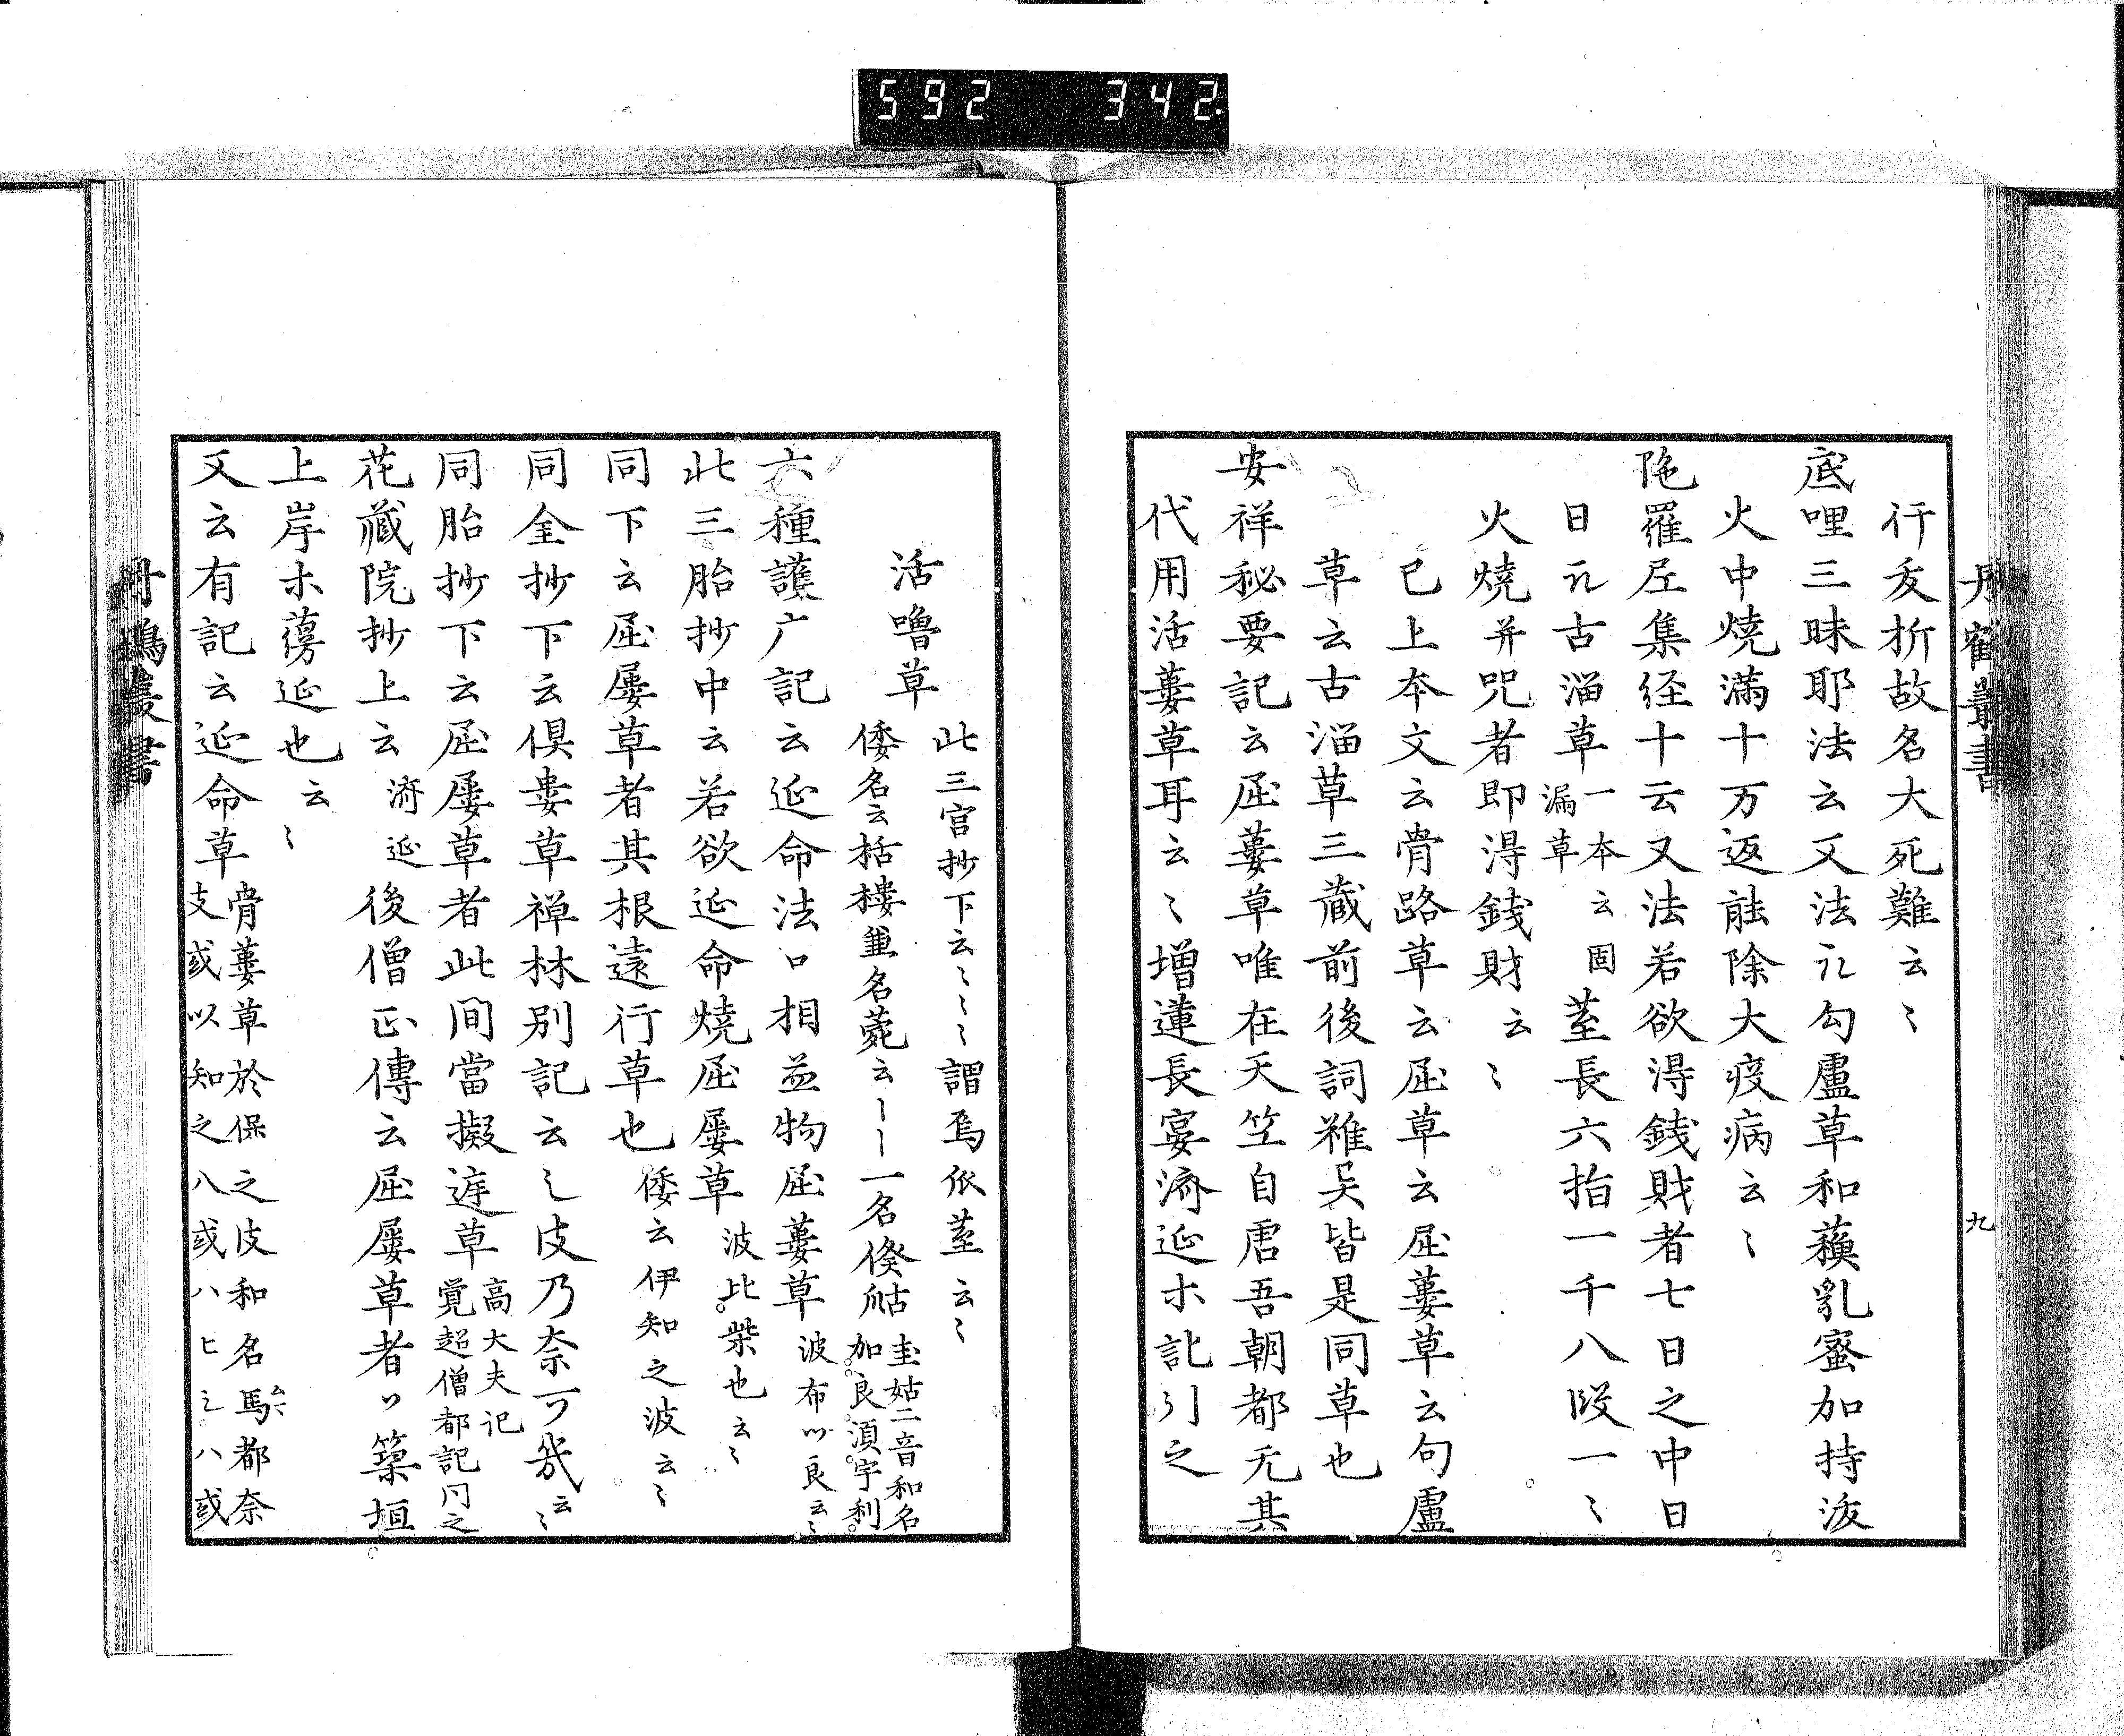 592 342
丹鶴叢書
九
行夭折故名大死難云〻
底哩三昧耶法云又法取勾盧草和蘇乳蜜加持汳
火中燒滿十万返能除大疫病云〻
陁羅尼集経十云又法若欲淂錢財者七日之中日
日取古溜草一本云固漏草莖長六指一千八段一〻
火燒并咒者即淂錢財云〻
已上夲文云骨路草云屈草云屈蔞草云句盧
草云古溜草三蔵前後詞雖㕦皆是同草也
安祥秘要記云屈蔞草唯在天竺自唐吾朝都无其
代用活蔞草耳云〻增蓮長宴済延ホ記引之
活嚕草
此三宮抄下云〻〻〻謂蔦依莖云〻
倭名云括樓並名薨云〻〻一名㑋㼋圭姑二音和名加良湏宇利
六種護广記云延命法口相並物屈蔞草波布以良云〻
此三胎抄中云若欲延命燒屈屢草波比柴也云〻
同下云屈屢草者其根遠行草也倭云伊知之波云〻
同金抄下云倶婁草禅林別記云之皮乃奈可幾云〻
同胎抄下云屈屢草者此間當擬莚草高大夫記覚超僧都記同之
花蔵院抄上云済延後僧正傳云屈屢草者〻築垣
上岸ホ蕩延也云〻
又云有記云延命草骨蔞草於保之皮和名馬都奈支或以知之八或八ヒ之八或
丹鶴叢書